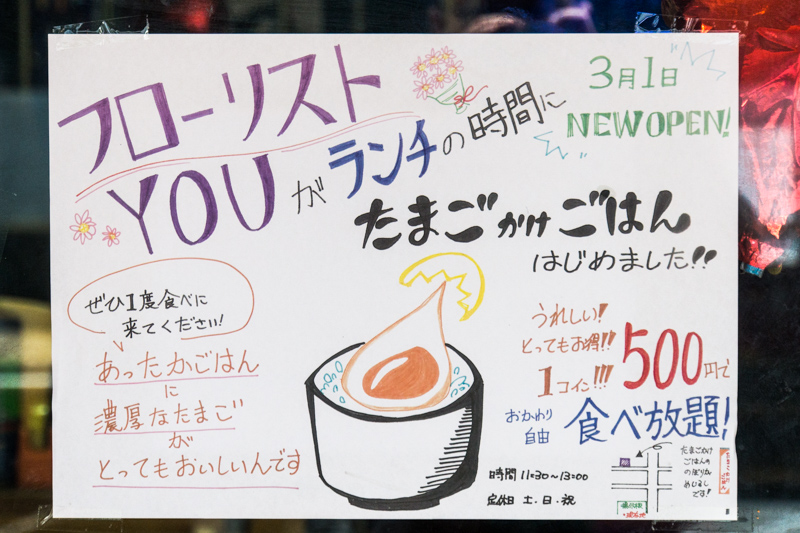 フローリスト
YOUがランチの時間に
3月1日
NEW OPEN!
たまごかけごはん
はじめました!!
ぜひ1度食べに
来てください!
あったかごはん
に
濃厚なたまご
が
とってもおいしいんです
うれしい!
とってもお得!!
1コイン!!! 500円で
おかわり
自由
食べ放題!
時間 11:30~13:00
定休日 土.日.祝
たまごかけ
ごはんの
のぼりが
めじるし
です!